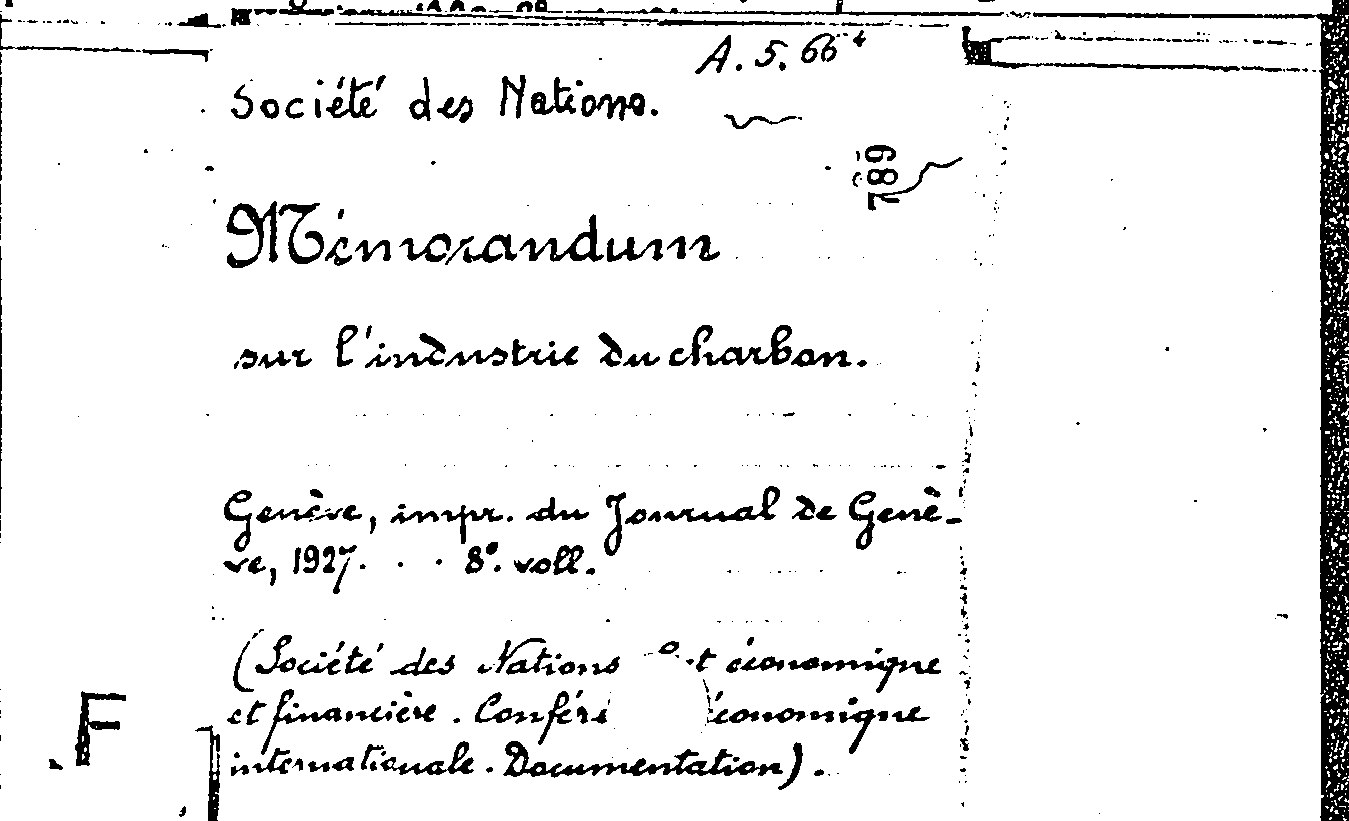 A. 5. 66
Société des Nations.
789
Mémorandum
sur l'industrie du charbon.
Genève, impr. du Journal de Genè-
ve, 1927. . . 8º. voll.
(Société des Nations économique
et financière. économique
internationale. Documentation).
F